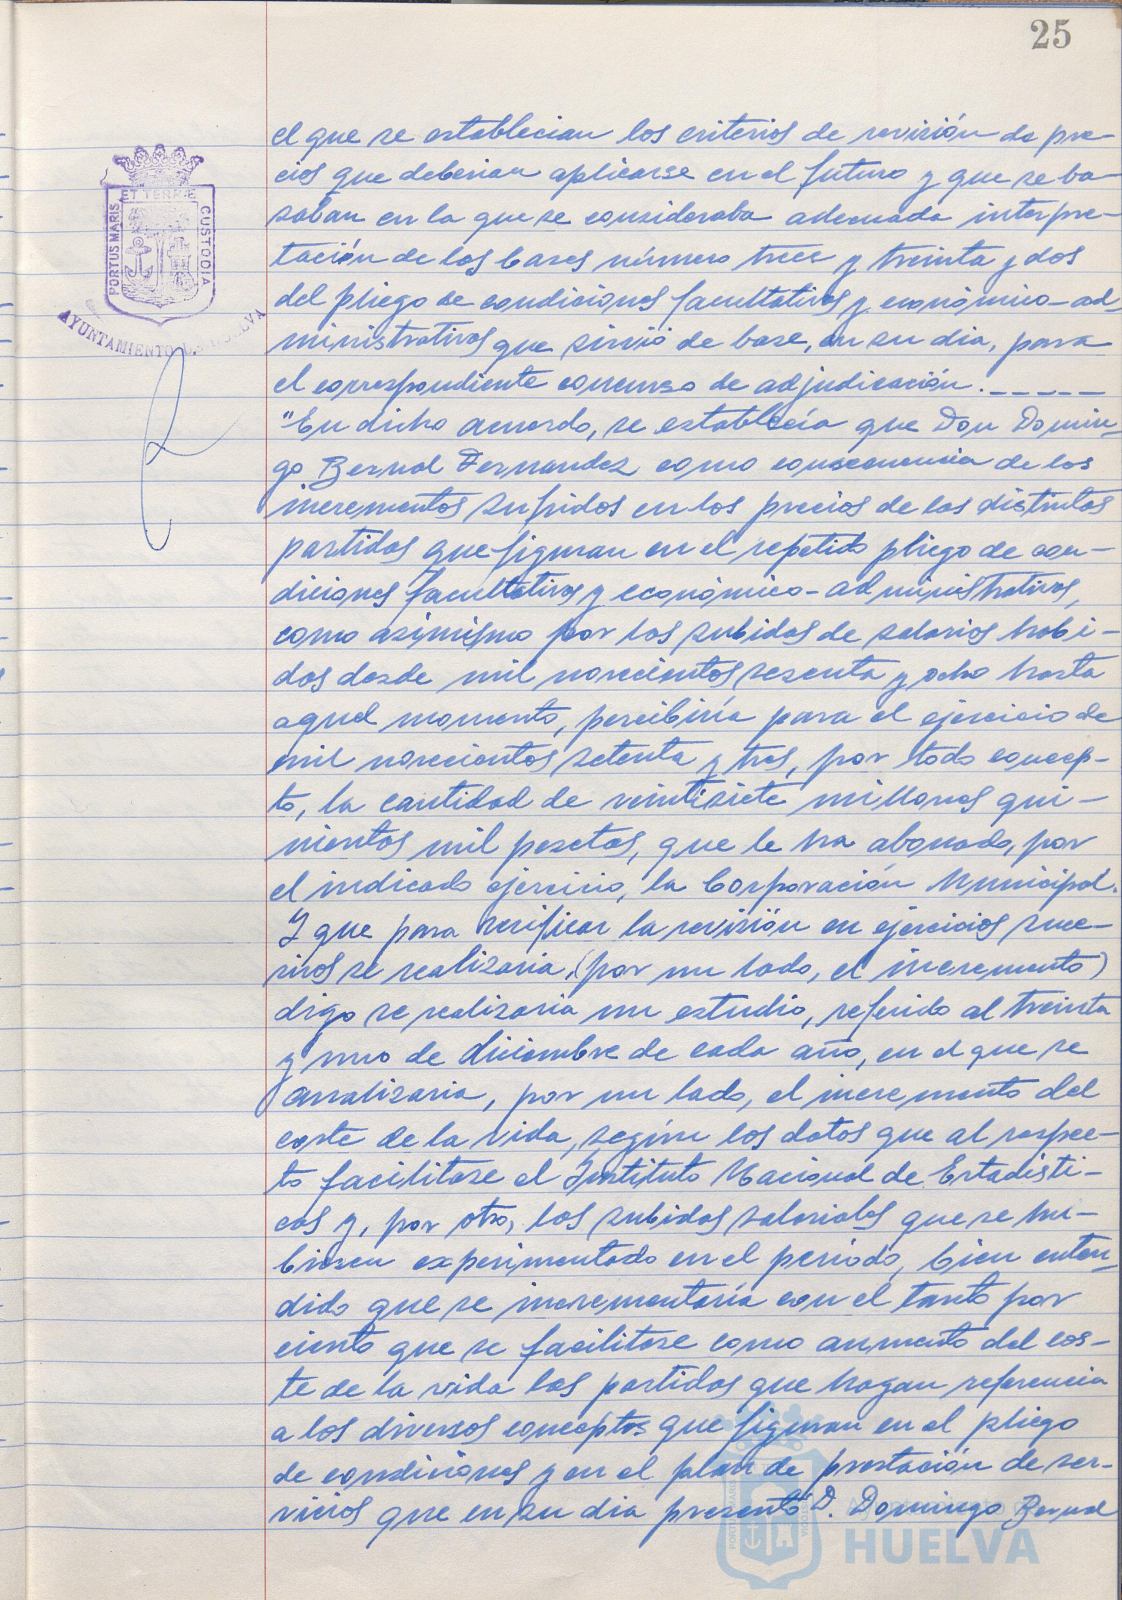 25
el que se establecian los criterios de revisión de pre-
cios que deberian aplicarse en el futuro y que se ba-
saban en la que se consideraba adecuada interpre-
tación de las bases número trece y treinta y dos
del pliego de condiciones facultativas y económico-ad-
ministrativas que sirvió de base, en su dia, para
el correspondiente concurso de adjudicación. _ _ _ _ _
"En dicho acuerdo, se establecía que Don Domin-
go Bernal Fernandez como consecuencia de los
incrementos sufridos en los precios de las distintas
partidas que figuran en el repetido pliego de con-
diciones facultativas y económico-administrativas,
como asimismo por las subidas de salarios habi-
dos desde mil novecientos sesenta y ocho hasta
aquel momento, percibiría para el ejercicio de
mil novecientos setenta y tres, por todo concep-
to, la cantidad de veintisiete millones qui-
nientas mil pesetas, que le ha abonado, por
el indicado ejercicio, la Corporación Municipal.
Y que para verificar la revisión en ejercicios suce-
sivos se realizaria, (por un lado, el incremento)
digo se realizaria un estudio, referido al treinta
y uno de diciembre de cada año, en el que se
analizaria, por un lado, el incremento del
coste de la vida, según los datos que al respec-
to facilitase el Instituto Nacional de Estadisti-
cas y, por otro, las subidas salariales que se hu-
biesen experimentado en el periodo, bien enten-
dido que se incrementaría con el tanto por
ciento que se facilitase como aumento del cos-
te de la vida las partidas que hagan referencia
a los diversos conceptos que figuran en el pliego
de condiciones y en el plan de prestación de ser-
vicios que en su dia presentó D. Domingo Bernal
PORTUS MARIS ET TERRÆ CUSTODIA
AYUNTAMIENTO DE HUELVA
HUELVA